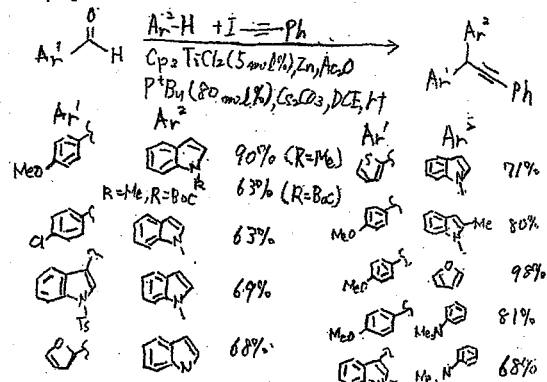 O
Ar¹ H
Ar²-H + I Ph
Cp₂TiCl₂(5 mol%), Zn, Ac₂O
PᵗBu (80 mol%), Cs₂CO₃, DCE, rt
Ar²
Ar¹ Ph
Ar¹ Ar²
MeO N R 90% (R=Me)
R=Me; R=Boc 63% (R=Boc)
Cl N 63%
N Ts N 69%
O N 68%
Ar¹ Ar²
S N 71%
MeO N Me 80%
MeO O 98%
MeO Me₂N 81%
Me₂N 68%